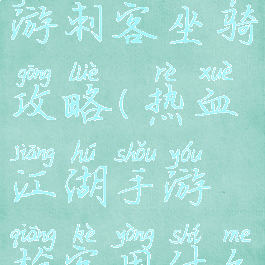 游刺客坐骑
gōng lüè rè xuè
攻略(热血
jiāng hú shǒu yóu
江湖手游
qiāng kè yòng shí me
枪客用什么